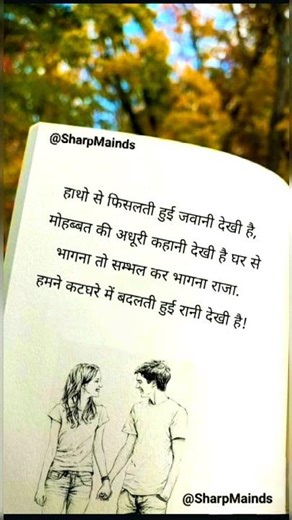 @SharpMainds
हाथो से फिसलती हुई जवानी देखी है,
मोहब्बत की अधूरी कहानी देखी है घर से
भागना तो सम्भल कर भागना राजा.
हमने कटघरे में बदलती हुई रानी देखी है!
@SharpMainds